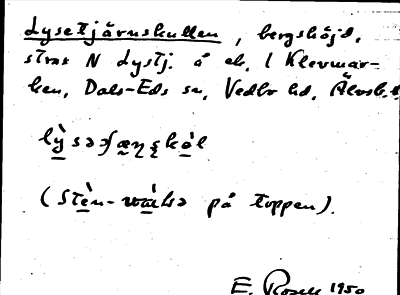 Lysetjärnskullen, bergshöjd,
strax N Lystj. å ek. i Klevmar-
ken, Dals-Eds sn, Vedbo hd, Älvsb. l
(Stèn- på toppen).
E. Rosell 1950